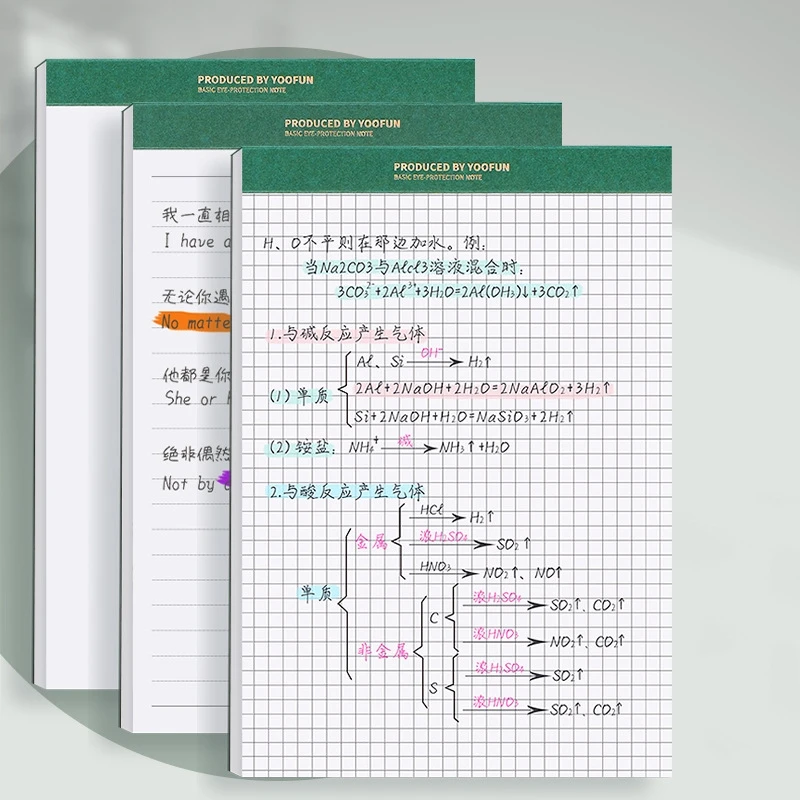 PRODUCED BY YOOFUN
BASIC EYE-PROTECTION NOTE
PRODUCED BY YOOFUN
BASIC EYE-PROTECTION NOTE
我一直相
I have a
无论你遇
No matte
他都是你
She or
绝非偶然
Not by
PRODUCED BY YOOFUN
BASIC EYE-PROTECTION NOTE
H、O不平则在那边加水。例:
当Na2CO3与Alcl3溶液混合时:
3CO₃²⁻+2Al³⁺+3H₂O=2Al(OH₃)↓+3CO₂↑
1.与碱反应产生气体
(1)单质
Al、Si OH⁻ H₂↑
2Al+2NaOH+2H₂O=2NaAlO₂+3H₂↑
Si+2NaOH+H₂O=NaSiO₃+2H₂↑
(2)铵盐: NH₄⁺ 碱 NH₃↑+H₂O
2.与酸反应产生气体
单质
金属
HCl H₂↑
浓H₂SO₄ SO₂↑
HNO₃ NO₂↑、NO↑
非金属
C
浓H₂SO₄ SO₂↑、CO₂↑
浓HNO₃ NO₂↑、CO₂↑
S
浓H₂SO₄ SO₂↑
浓HNO₃ SO₂↑、CO₂↑